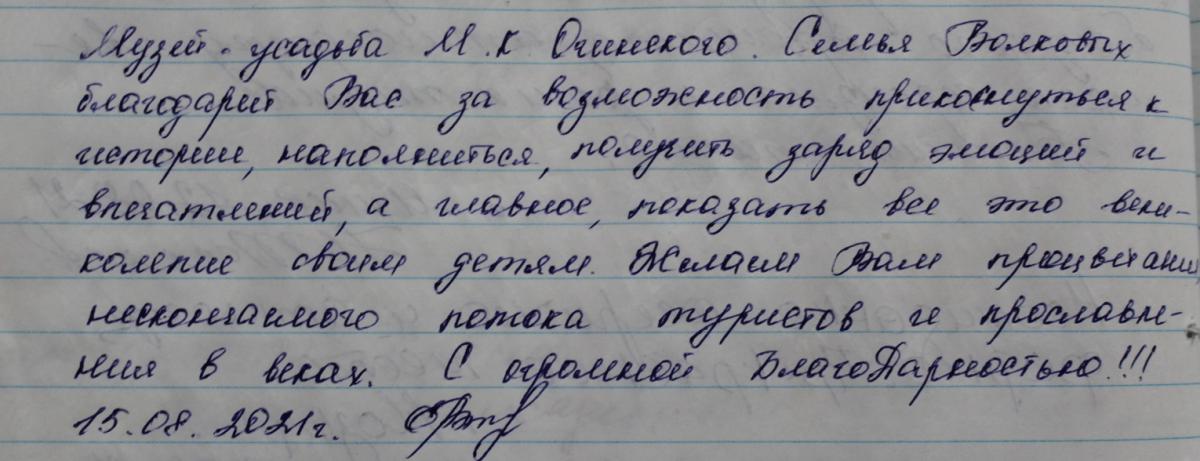 Музей-усадьба М.К. Огинского. Семья Волковых
благодарит Вас за возможность прикоснуться к
истории, наполниться, получить заряд эмоций и
впечатлений, а главное, показать все это вели-
колепие своим детям. Желаем Вам процветания,
нескончаемого потока туристов и прославле-
ния в веках. С огромной БлагоДарностью!!!
15.08.2021г.